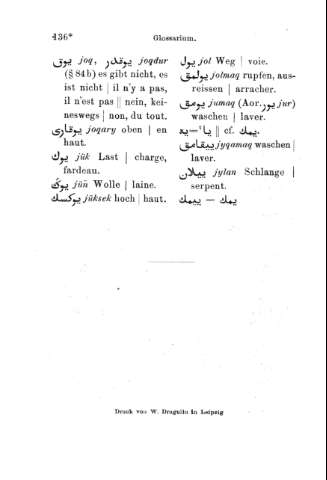 436*
Glossarium.
يوق joq, يوقدر joqdur
(§ 84b) es gibt nicht, es
ist nicht | il n'y a pas,
il n'est pas || nein, kei-
neswegs | non, du tout.
يوقارى joqary oben | en
haut.
يوك jük Last | charge,
fardeau.
يوڭ jün̄ Wolle | laine.
يوكسك jüksek hoch | haut.
يول jol Weg | voie.
يولمق jolmaq rupfen, aus-
reissen | arracher.
يومق jumaq (Aor. يور jur)
waschen | laver.
يا—ʿيه || cf. يمك.
ييقامق jyqamaq waschen |
laver.
ييلان jylan Schlange |
serpent.
ييمك — يمك
Druck von W. Drugulin in Leipzig